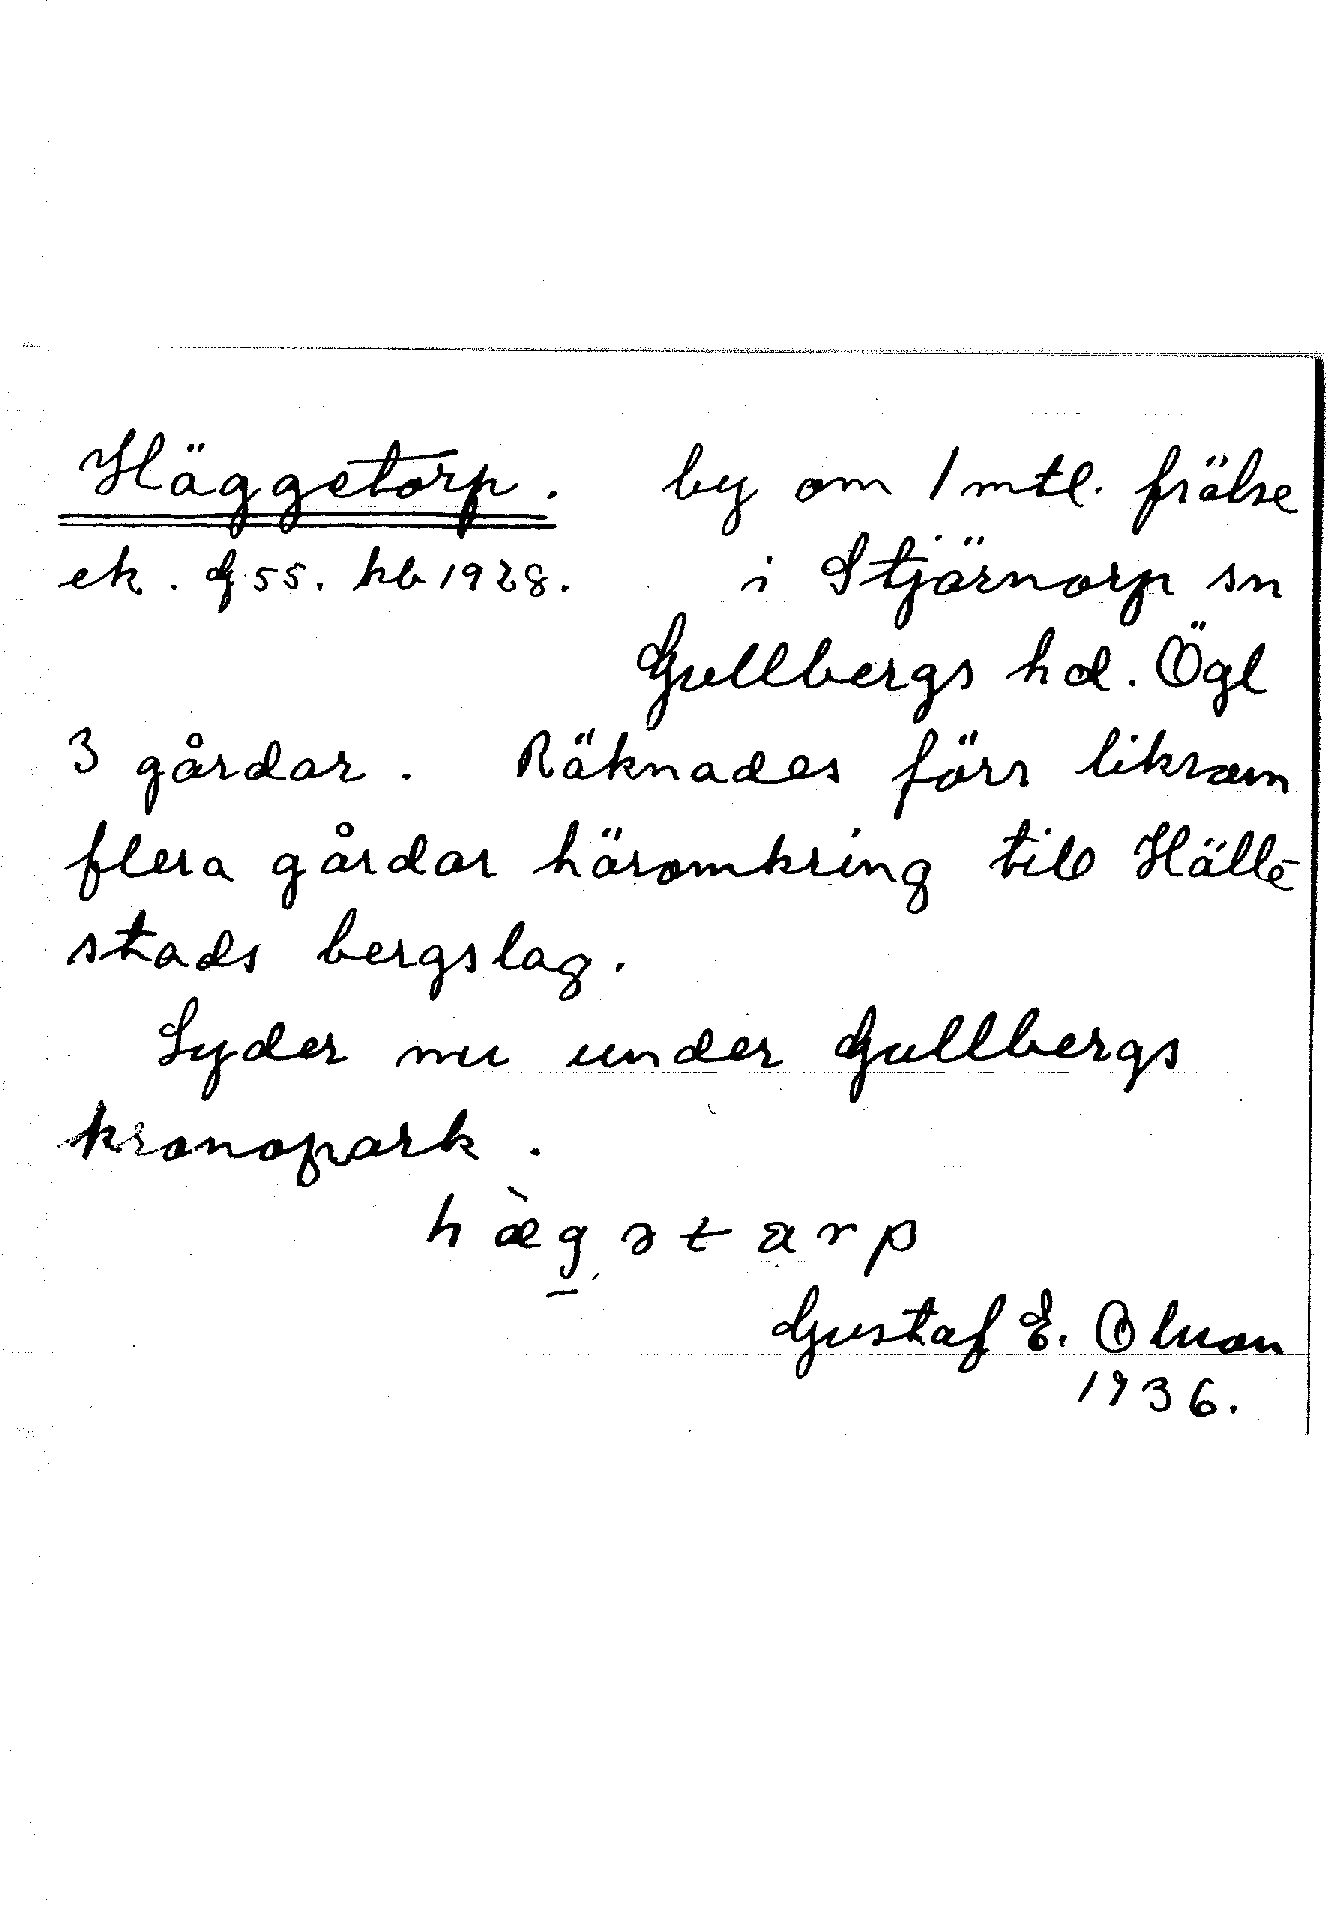 Häggetorp. by om 1 mtl. frälse
ek. df 55. hb 1928. i Stjärnorp sn
Gullbergs hd. Ögl
3 gårdar. Räknades förr liksom
flera gårdar häromkring till Hälle-
stads bergslag.
Lyder nu under Gullbergs
kronopark.
hæ̀g̲ətarp
Gustaf E. Olsson
1936.